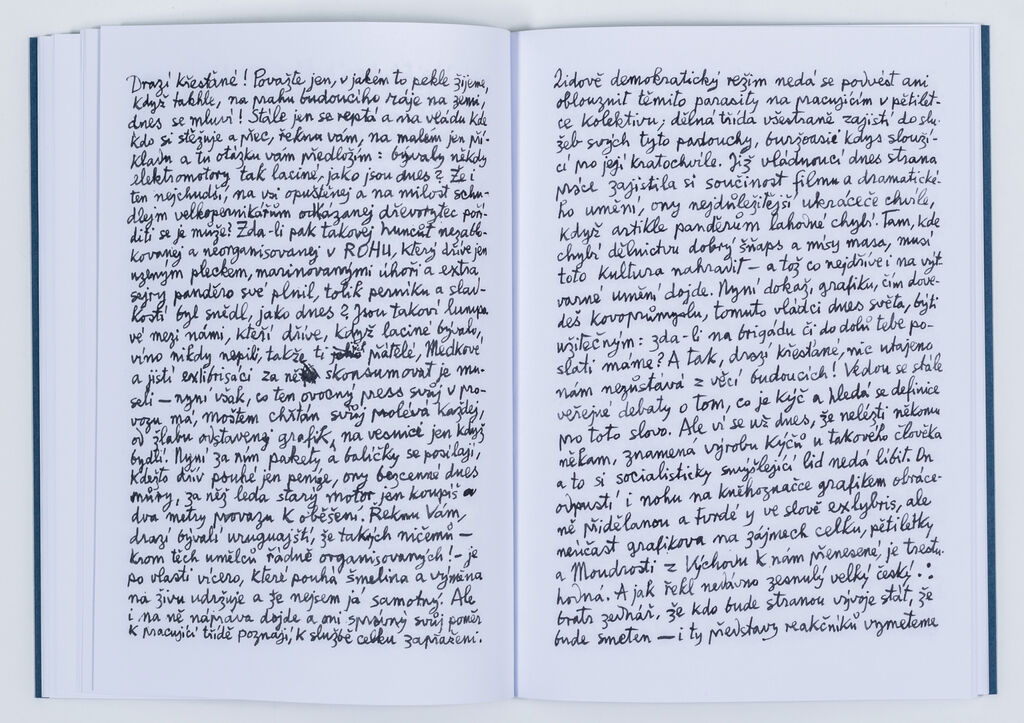 Drazí křesťané! Považte jen, v jakém to pekle žijeme,
když takhle, na prahu budoucího ráje na zemi,
dnes se mluví! Stále jen se reptá a na vládu kde
kdo si stěžuje a přec, řeknu vám, na malém jen pří-
kladu a tu otázku vám předložím: bývaly někdy
elektromotory tak laciné, jako jsou dnes? Že i
ten nejchudší, na vsi opuštěnej a na milost schu-
dlejm velkoperníkářům odkázanej dřevorytec poří-
diti se je může? Zda-li pak takovej huncút nezablo-
kovanej a neorganisovanej v ROHU, který dříve jen
uzeným pleckem, marinovanými úhoři a extra
sejry panděro své plnil, tolik perníku a slad-
kostí byl snědl, jako dnes? Jsou takoví lumpo-
vé mezi námi, kteří dříve, když laciné bývalo,
víno nikdy nepili, takže ti přátelé, Medkové
a jistí exlibrisáci za něj skonsumovat je mu-
seli — nyní však, co ten ovocný press svůj v pro-
vozu má, moštem chřtán svůj prolévá každej,
od žlabu odstavenej grafik, na vesnici jen když
bydlí! Nyní za ním pakety, a balíčky se posílají,
kdežto dřív pouhé jen peníze, ony bezcenné dnes
můry, za něj leda starý motor jen koupíš a
dva metry provazu k oběšení. Řeknu Vám,
drazí bývalí uruguajští, že takových ničemů —
krom těch umělců řádně organisovaných! — je
po vlasti vícero, které pouhá šmelina a výměna
na živu udržuje a že nejsem já samotný. Ale
i na ně náprava dojde a oni správný svůj poměr
k pracující třídě poznají, k službě celku zapraženi.
Lidově demokratický režim nedá se podvést ani
oblouznit těmito parasity na pracujícím v pětilet-
ce kolektivu; dělná třída všestraně zajistí do slu-
žeb svých tyto padouchy, buržoasii kdys slouží-
cí pro její kratochvíle. Již vládnoucí dnes strana
práce zajistila si součinost filmu a dramatické-
ho umění, ony nejdůležitější ukraceče chvíle,
když artikle panděrům lahodné chybí. Tam, kde
chybí dělnictvu dobrý šnaps a mísy masa, musí
toto kultura nahradit — a tož co nejdříve i na výt-
varné umění dojde. Nyní dokaž, grafiku, čím dove-
deš kovoprůmyslu, tomuto vládci dnes světa, býti
užitečným: zda-li na brigádu či do dolů tebe po-
slati máme? A tak, drazí křesťané, nic utajeno
nám nezůstává z věcí budoucích! Vedou se stále
veřejné debaty o tom, co je kýč a hledá se definice
pro toto slovo. Ale ví se už dnes, že nelézti někomu
někam, znamená výrobu kýčů u takového člověka
a to si socialisticky smýšlející lid nedá líbit. On
odpustí i nohu na kněhoznačce grafikem obráce-
ně přidělanou a tvrdé y ve slově exlybris, ale
neúčast grafikova na zájmech celku, pětiletky,
a Moudrosti z Východu k nám přenesené, je trestu-
hodná. A jak řekl nedávno zesnulý velký český
bratr zedňář, že kdo bude stranou vývoje stát, že
bude smeten — i ty představy reakčníků vymeteme